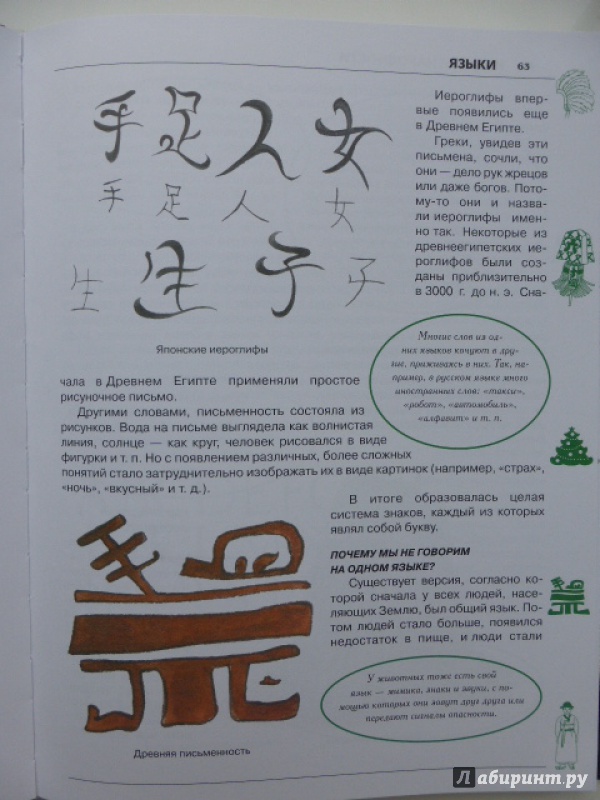 ЯЗЫКИ 63
手 足 人 女
手 足 人 女
生 生 子 子
Японские иероглифы
Иероглифы впер-
вые появились еще
в Древнем Египте.
Греки, увидев эти
письмена, сочли, что
они — дело рук жрецов
или даже богов. Пото-
му-то они и назва-
ли иероглифы имен-
но так. Некоторые из
древнеегипетских ие-
роглифов были соз-
даны приблизительно
в 3000 г. до н. э. Сна-
чала в Древнем Египте применяли простое
рисуночное письмо.
Другими словами, письменность состояла из
рисунков. Вода на письме выглядела как волнистая
линия, солнце — как круг, человек рисовался в виде
фигурки и т. п. Но с появлением различных, более сложных
понятий стало затруднительно изображать их в виде картинок (например, «страх»,
«ночь», «вкусный» и т. д.).
Многие слов из од-
них языков кочуют в дру-
гие, приживаясь в них. Так, на-
пример, в русском языке много
иностранных слов: «такси»,
«робот», «автомобиль»,
«алфавит» и т. п.
В итоге образовалась целая
система знаков, каждый из которых
являл собой букву.
ПОЧЕМУ МЫ НЕ ГОВОРИМ
НА ОДНОМ ЯЗЫКЕ?
Существует версия, согласно ко-
торой сначала у всех людей, насе-
ляющих Землю, был общий язык. По-
том людей стало больше, появился
недостаток в пище, и люди стали
У животных тоже есть свой
язык — мимика, знаки и звуки, с по-
мощью которых они зовут друг друга или
передают сигналы опасности.
Древняя письменность
Лабиринт.ру